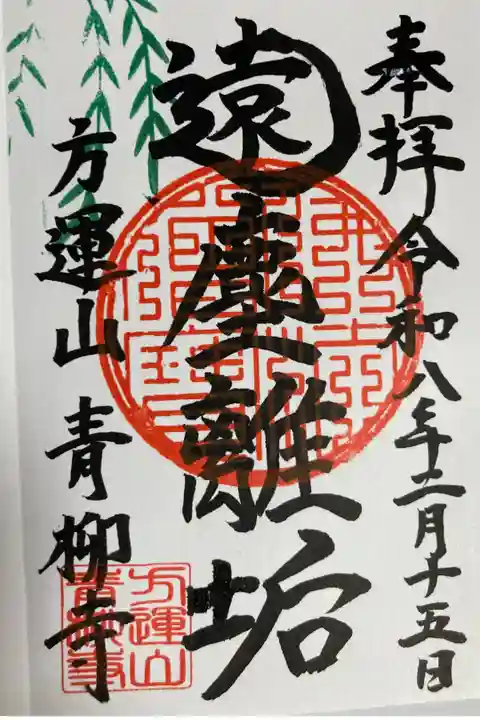 奉拝令和八年二月十五日
遠塵離垢
方運山青柳寺
方運山
青柳寺